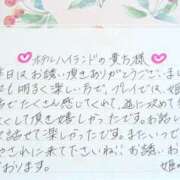 ホテルハイランドの貴方様
本日はお誘い頂きありがとうございま
も明るく楽しい方で、プレイでは、姫
たくさん感じてくれて、並に攻めて
して頂き嬉しかったです。まったり
話せて楽しかったです。またいつで
やされに来て下さいね!お誘いお
おります。
姫